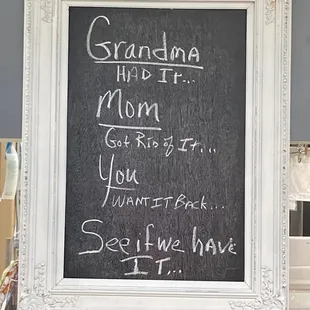 Grandma
HAD IT...
Mom
Got Rid of It...
You
WANT IT BACK...
See if we have
IT...